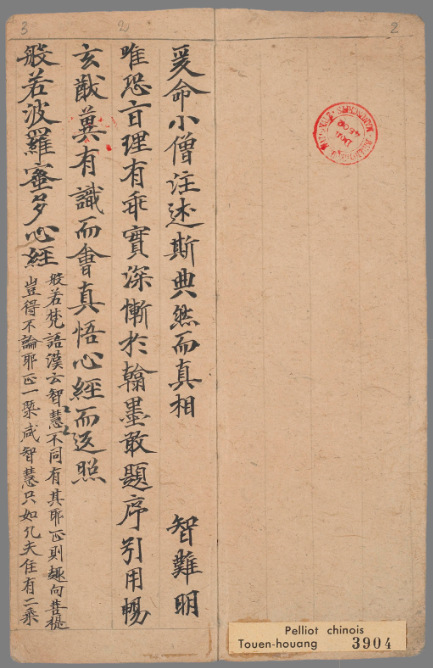 2
3
爰命小僧注述斯典然而真相 智難明
唯恐言理有乖實深慚於翰墨敢題序引用暢
玄猷冀有識而會真悟心經而返照
般若波羅蜜多心經
般若梵語漢云智〻慧〻不同有其耶正則趣向菩提
豈得不論耶正一槩咸智慧只如凡夫住有二乘
Pelliot chinois
Touen-houang 3904